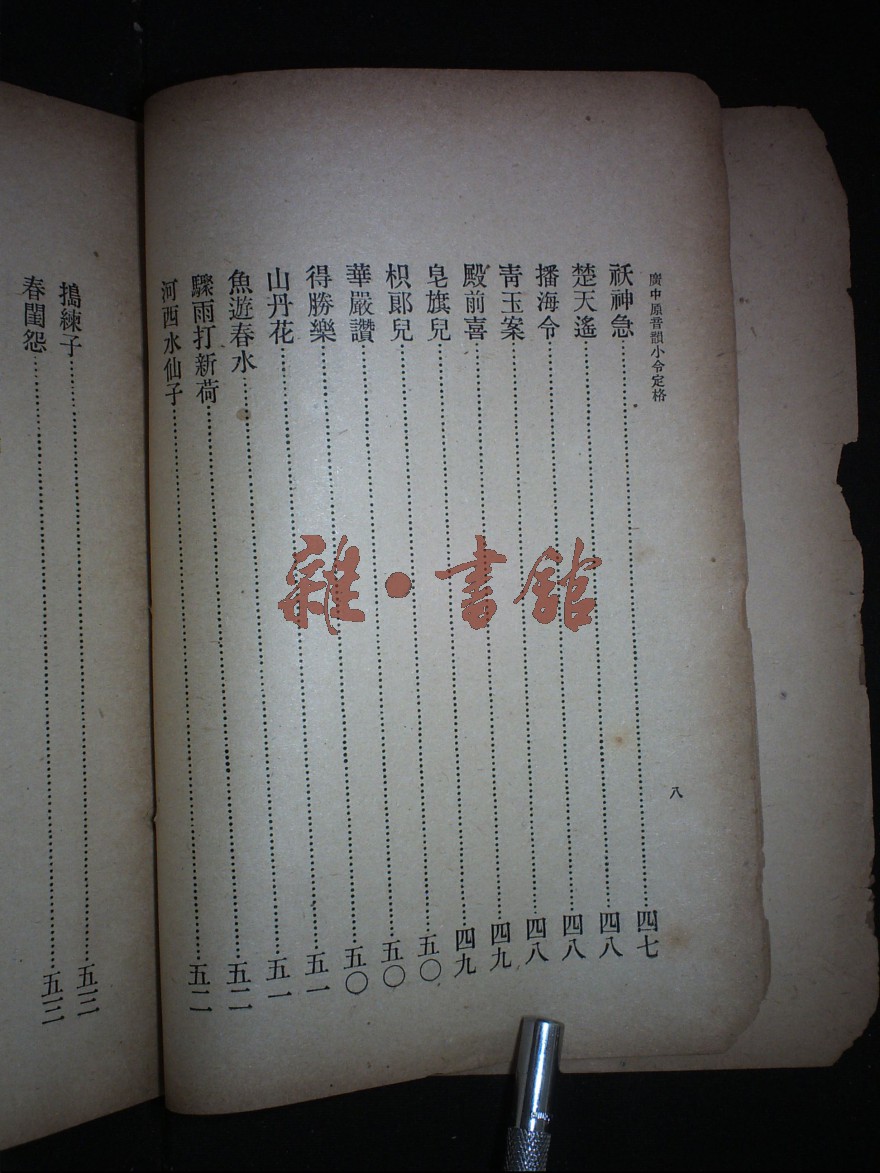 廣中原音韻小令定格
八
祆神急……四七
楚天遙……四八
播海令……四八
青玉案……四八
殿前喜……四九
皂旗兒……四九
枳郎兒……五〇
華嚴讚……五〇
得勝樂……五〇
山丹花……五一
魚遊春水……五一
驟雨打新荷……五二
河西水仙子……五二
搗練子……五三
春閨怨……五三
雜·書館